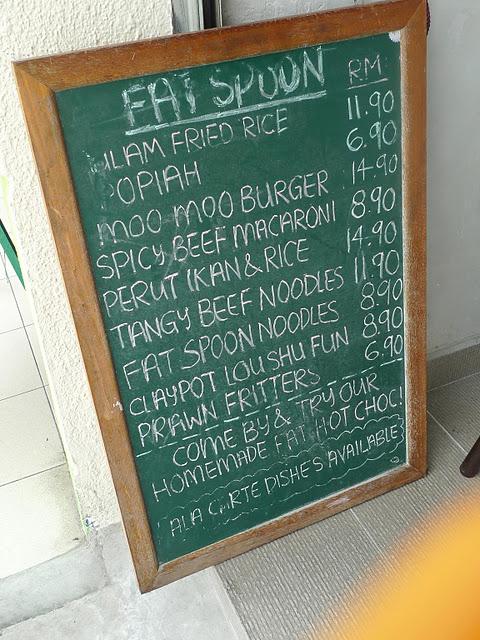 FAT SPOON
RM
ULAM FRIED RICE 11.90
POPIAH 6.90
MOO-MOO BURGER 14.90
SPICY BEEF MACARONI 8.90
PERUT IKAN & RICE 14.90
TANGY BEEF NOODLES 11.90
FAT SPOON NOODLES 8.90
CLAYPOT LOU SHU FUN 8.90
PRAWN FRITTERS 6.90
COME BY & TRY OUR
HOMEMADE FAT HOT CHOC!
ALA CARTE DISHES AVAILABLE